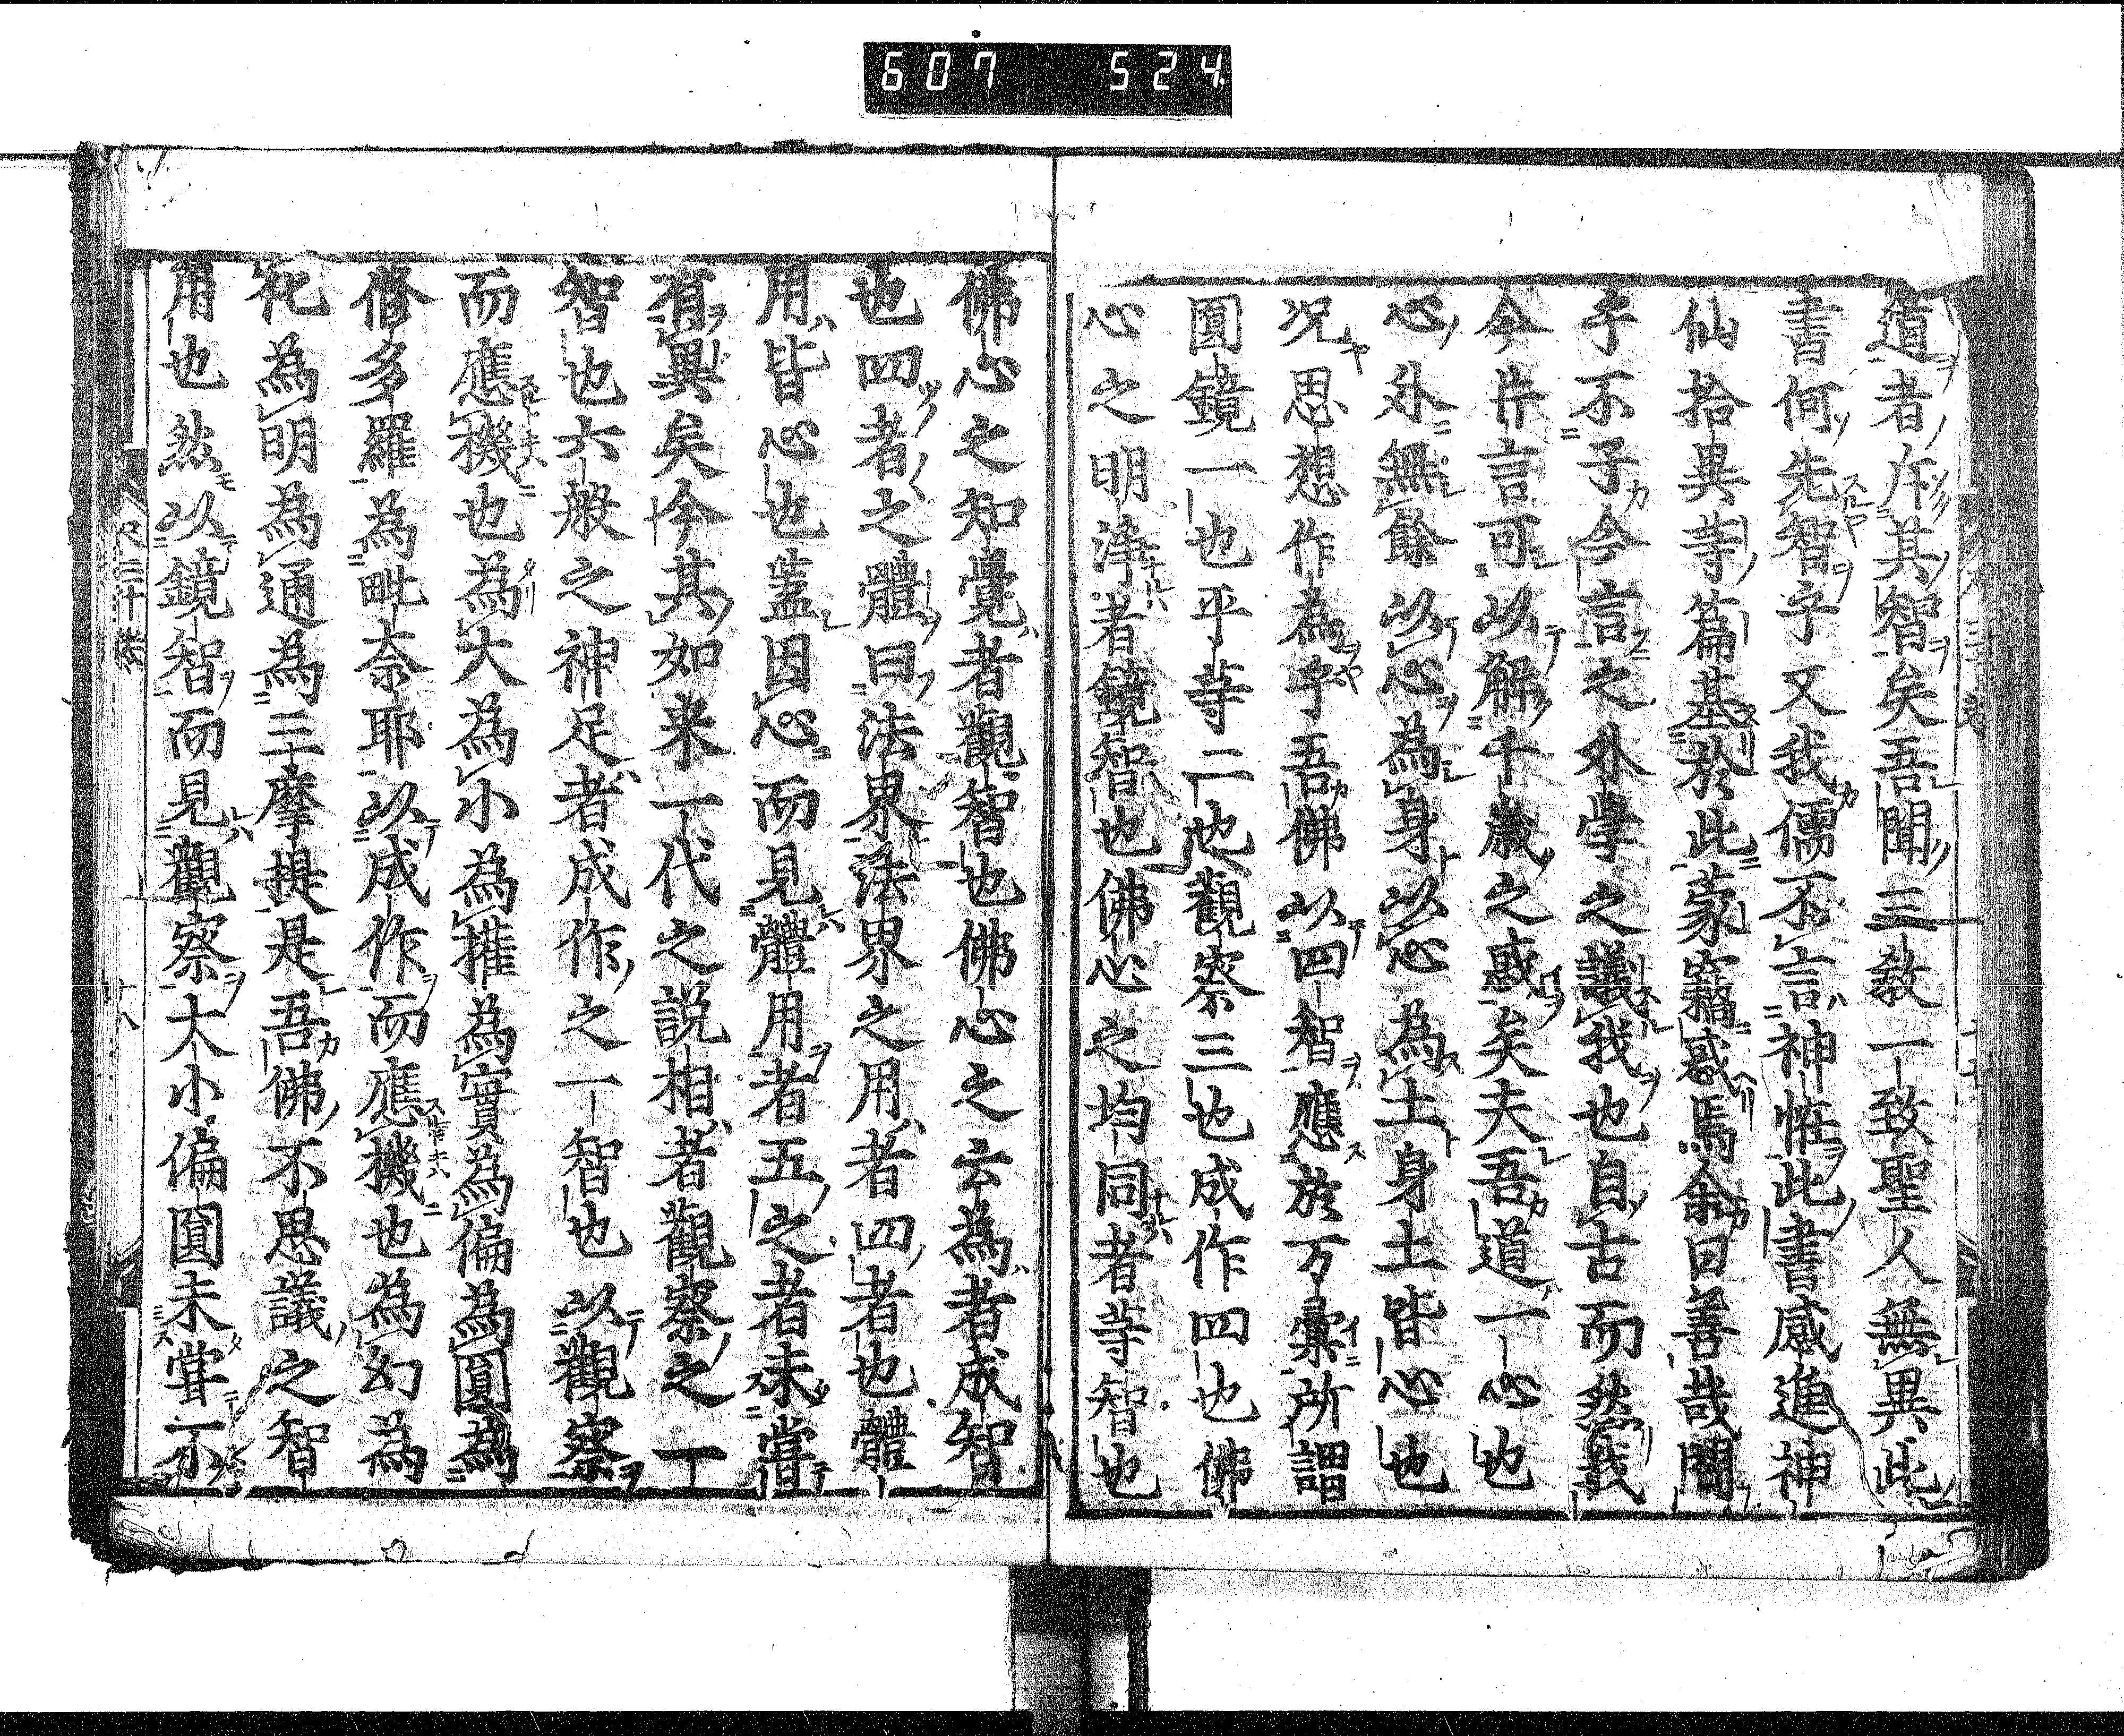 607 524
道者斥其智矣吾聞三教一致聖人無異此
書何先智字又我儒不言神恠此書感進神
仙拾異等篇基於此蒙竊惑焉余曰善哉問
乎不子今言之外學之議我也自古而然我
今片言可以解千歲之惑矣夫吾道一心也
心外無餘以心為身以心為土身土皆心也
况思想作為乎吾佛以四智應於万彙所謂
圓鏡一也平等二也觀察三也成作四也佛
心之明淨者鏡智也佛心之均同者等智也
佛心之知覺者觀智也佛心之云為者成智
也四者之體曰法界法界之用者四者也體
用皆心也蓋因心而見體用者五之者未嘗
有異矣今其如来一代之説相者觀察之一
智也六般之神足者成作之一智也以觀察
而應機也為大為小為權為實為偏為圓為
修多羅為毗奈耶以成作而應機也為幻為
化為明為通為三摩提是吾佛不思議之智
用也然以鏡智而見觀察大小偏圓未嘗不